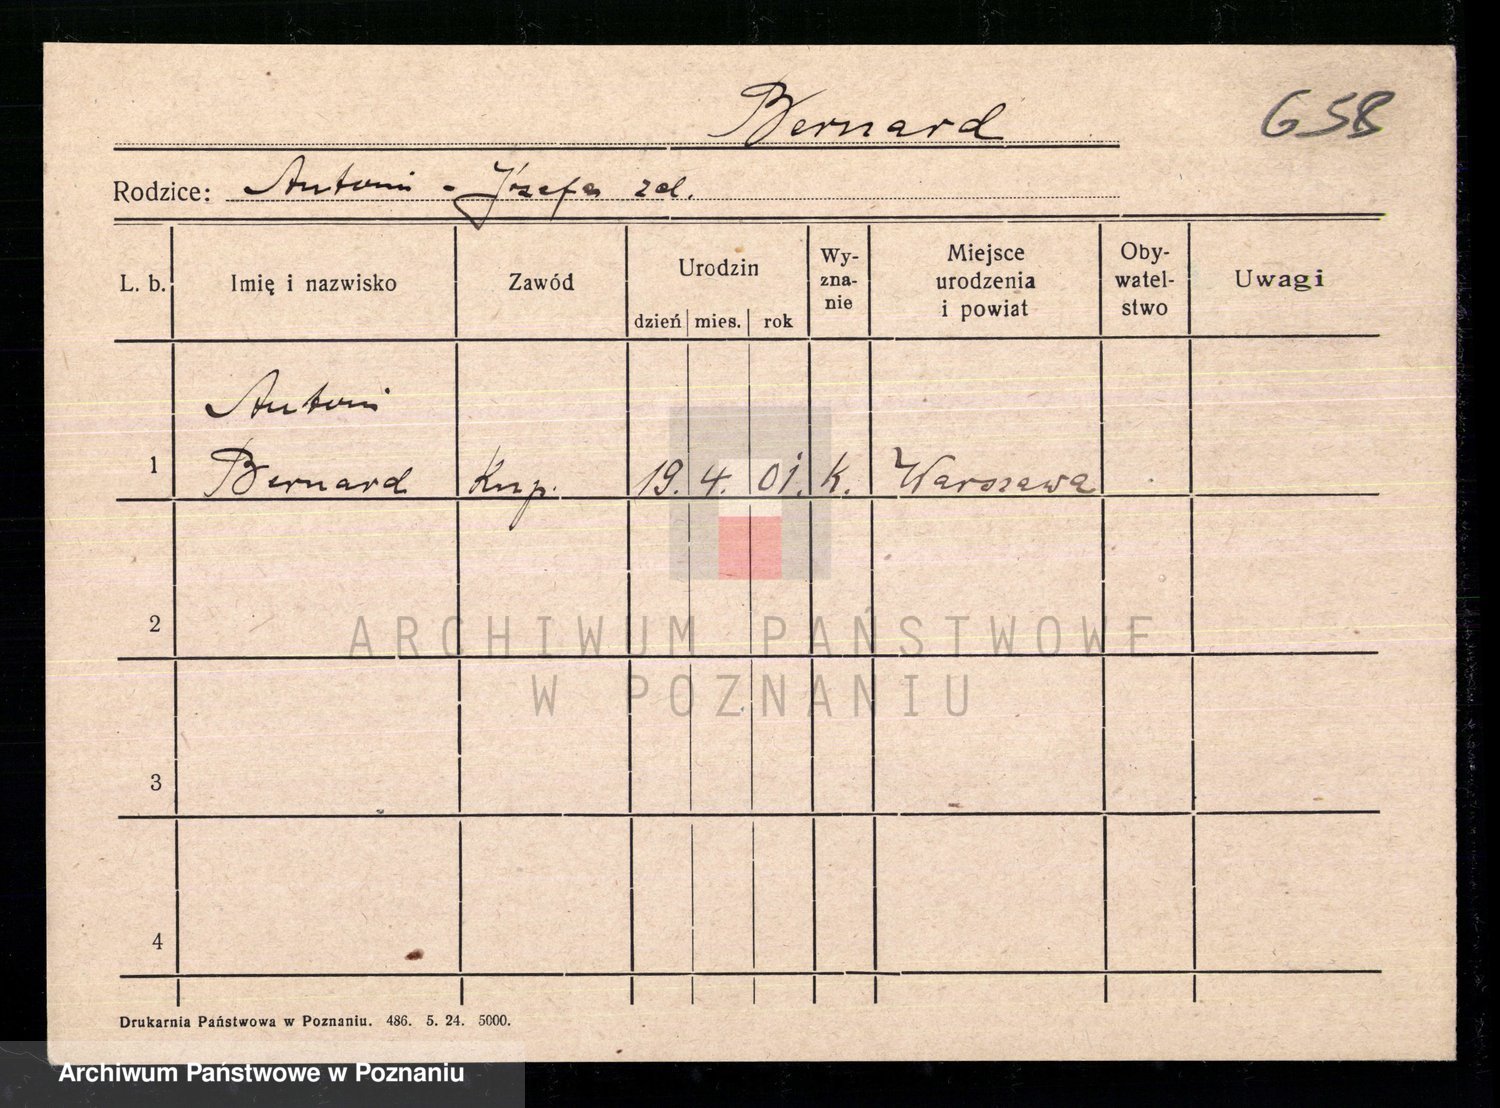 Bernard
658
Rodzice: Antoni - Józefa zd.
L. b. Imię i nazwisko Zawód Urodzin dzień mies. rok Wy-zna-nie Miejsce urodzenia i powiat Oby-watel-stwo Uwagi
Antoni
1 Bernard Kup. 19. 4. 01. k. Warszawa
2
3
4
Drukarnia Państwowa w Poznaniu. 486. 5. 24. 5000.
ARCHIWUM PAŃSTWOWE
W POZNANIU
Archiwum Państwowe w Poznaniu